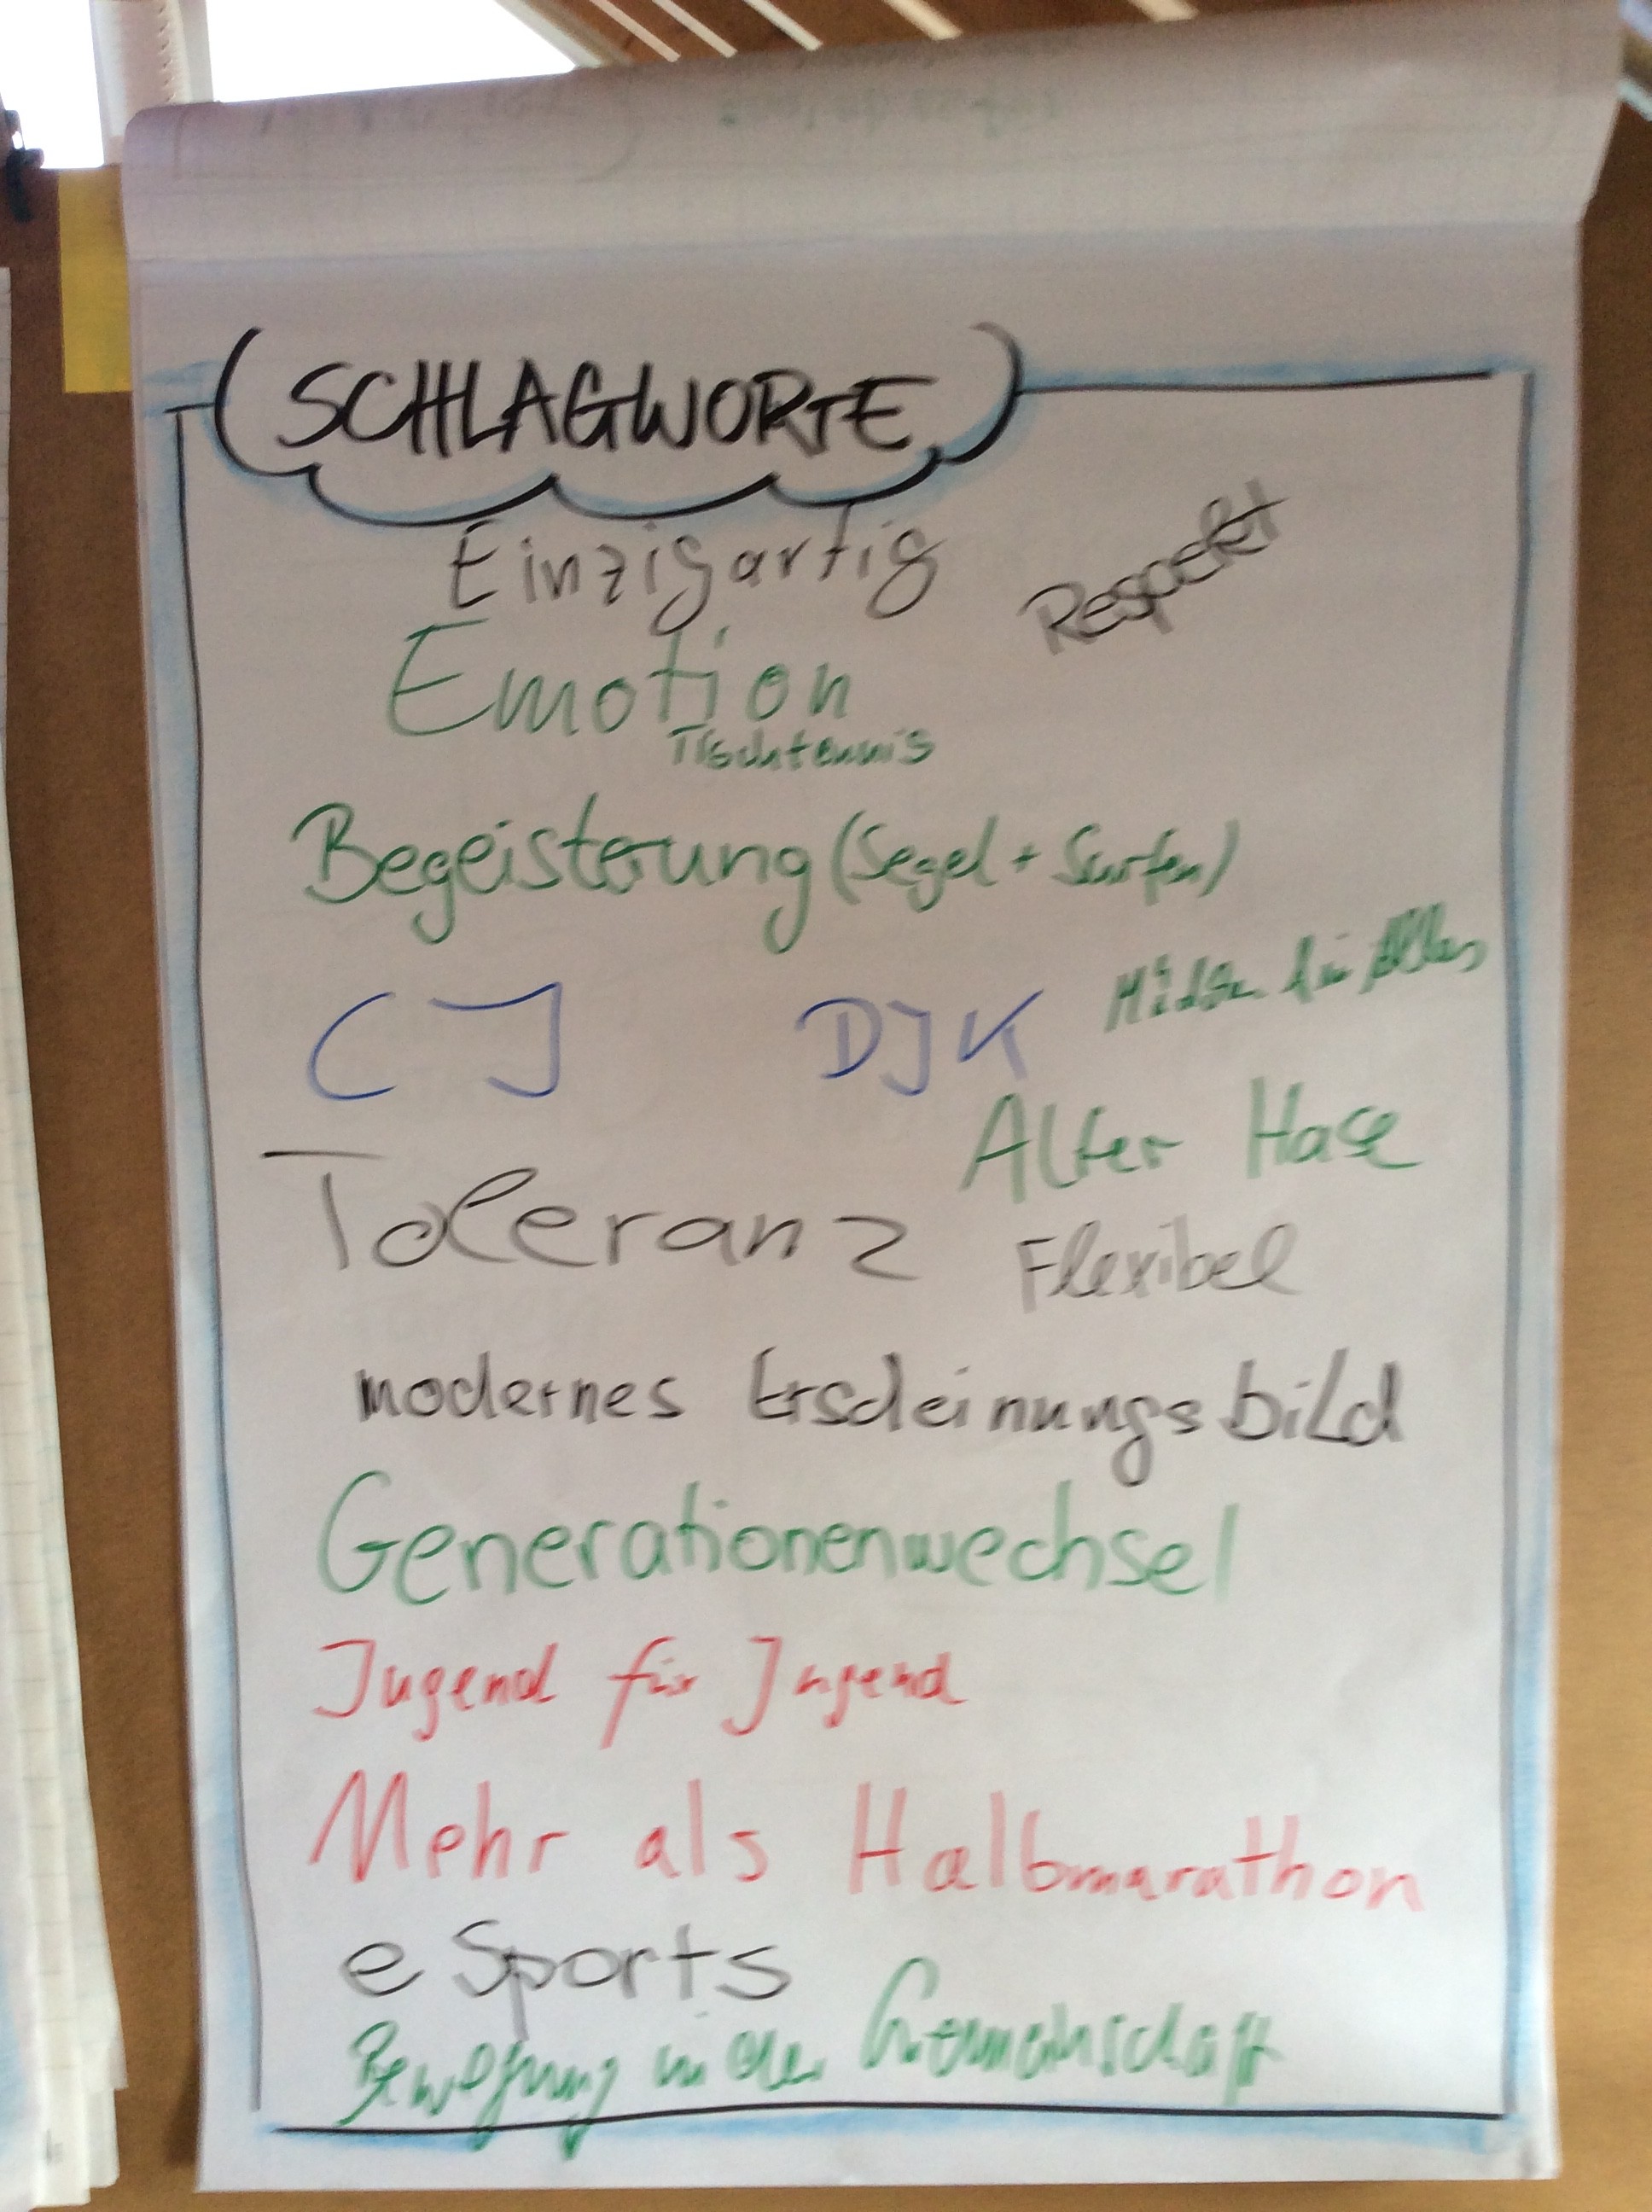 SCHLAGWORTE
Einzigartig
Respekt
Emotion
Tischtennis
Begeisterung (Segel + Surfen)
CJ DJK
Alles
Alter Hase
Toleranz
Flexibel
modernes Erscheinungsbild
Generationenwechsel
Jugend für Jugend
Mehr als Halbmarathon
eSports
Bewegung in der Gemeinschaft